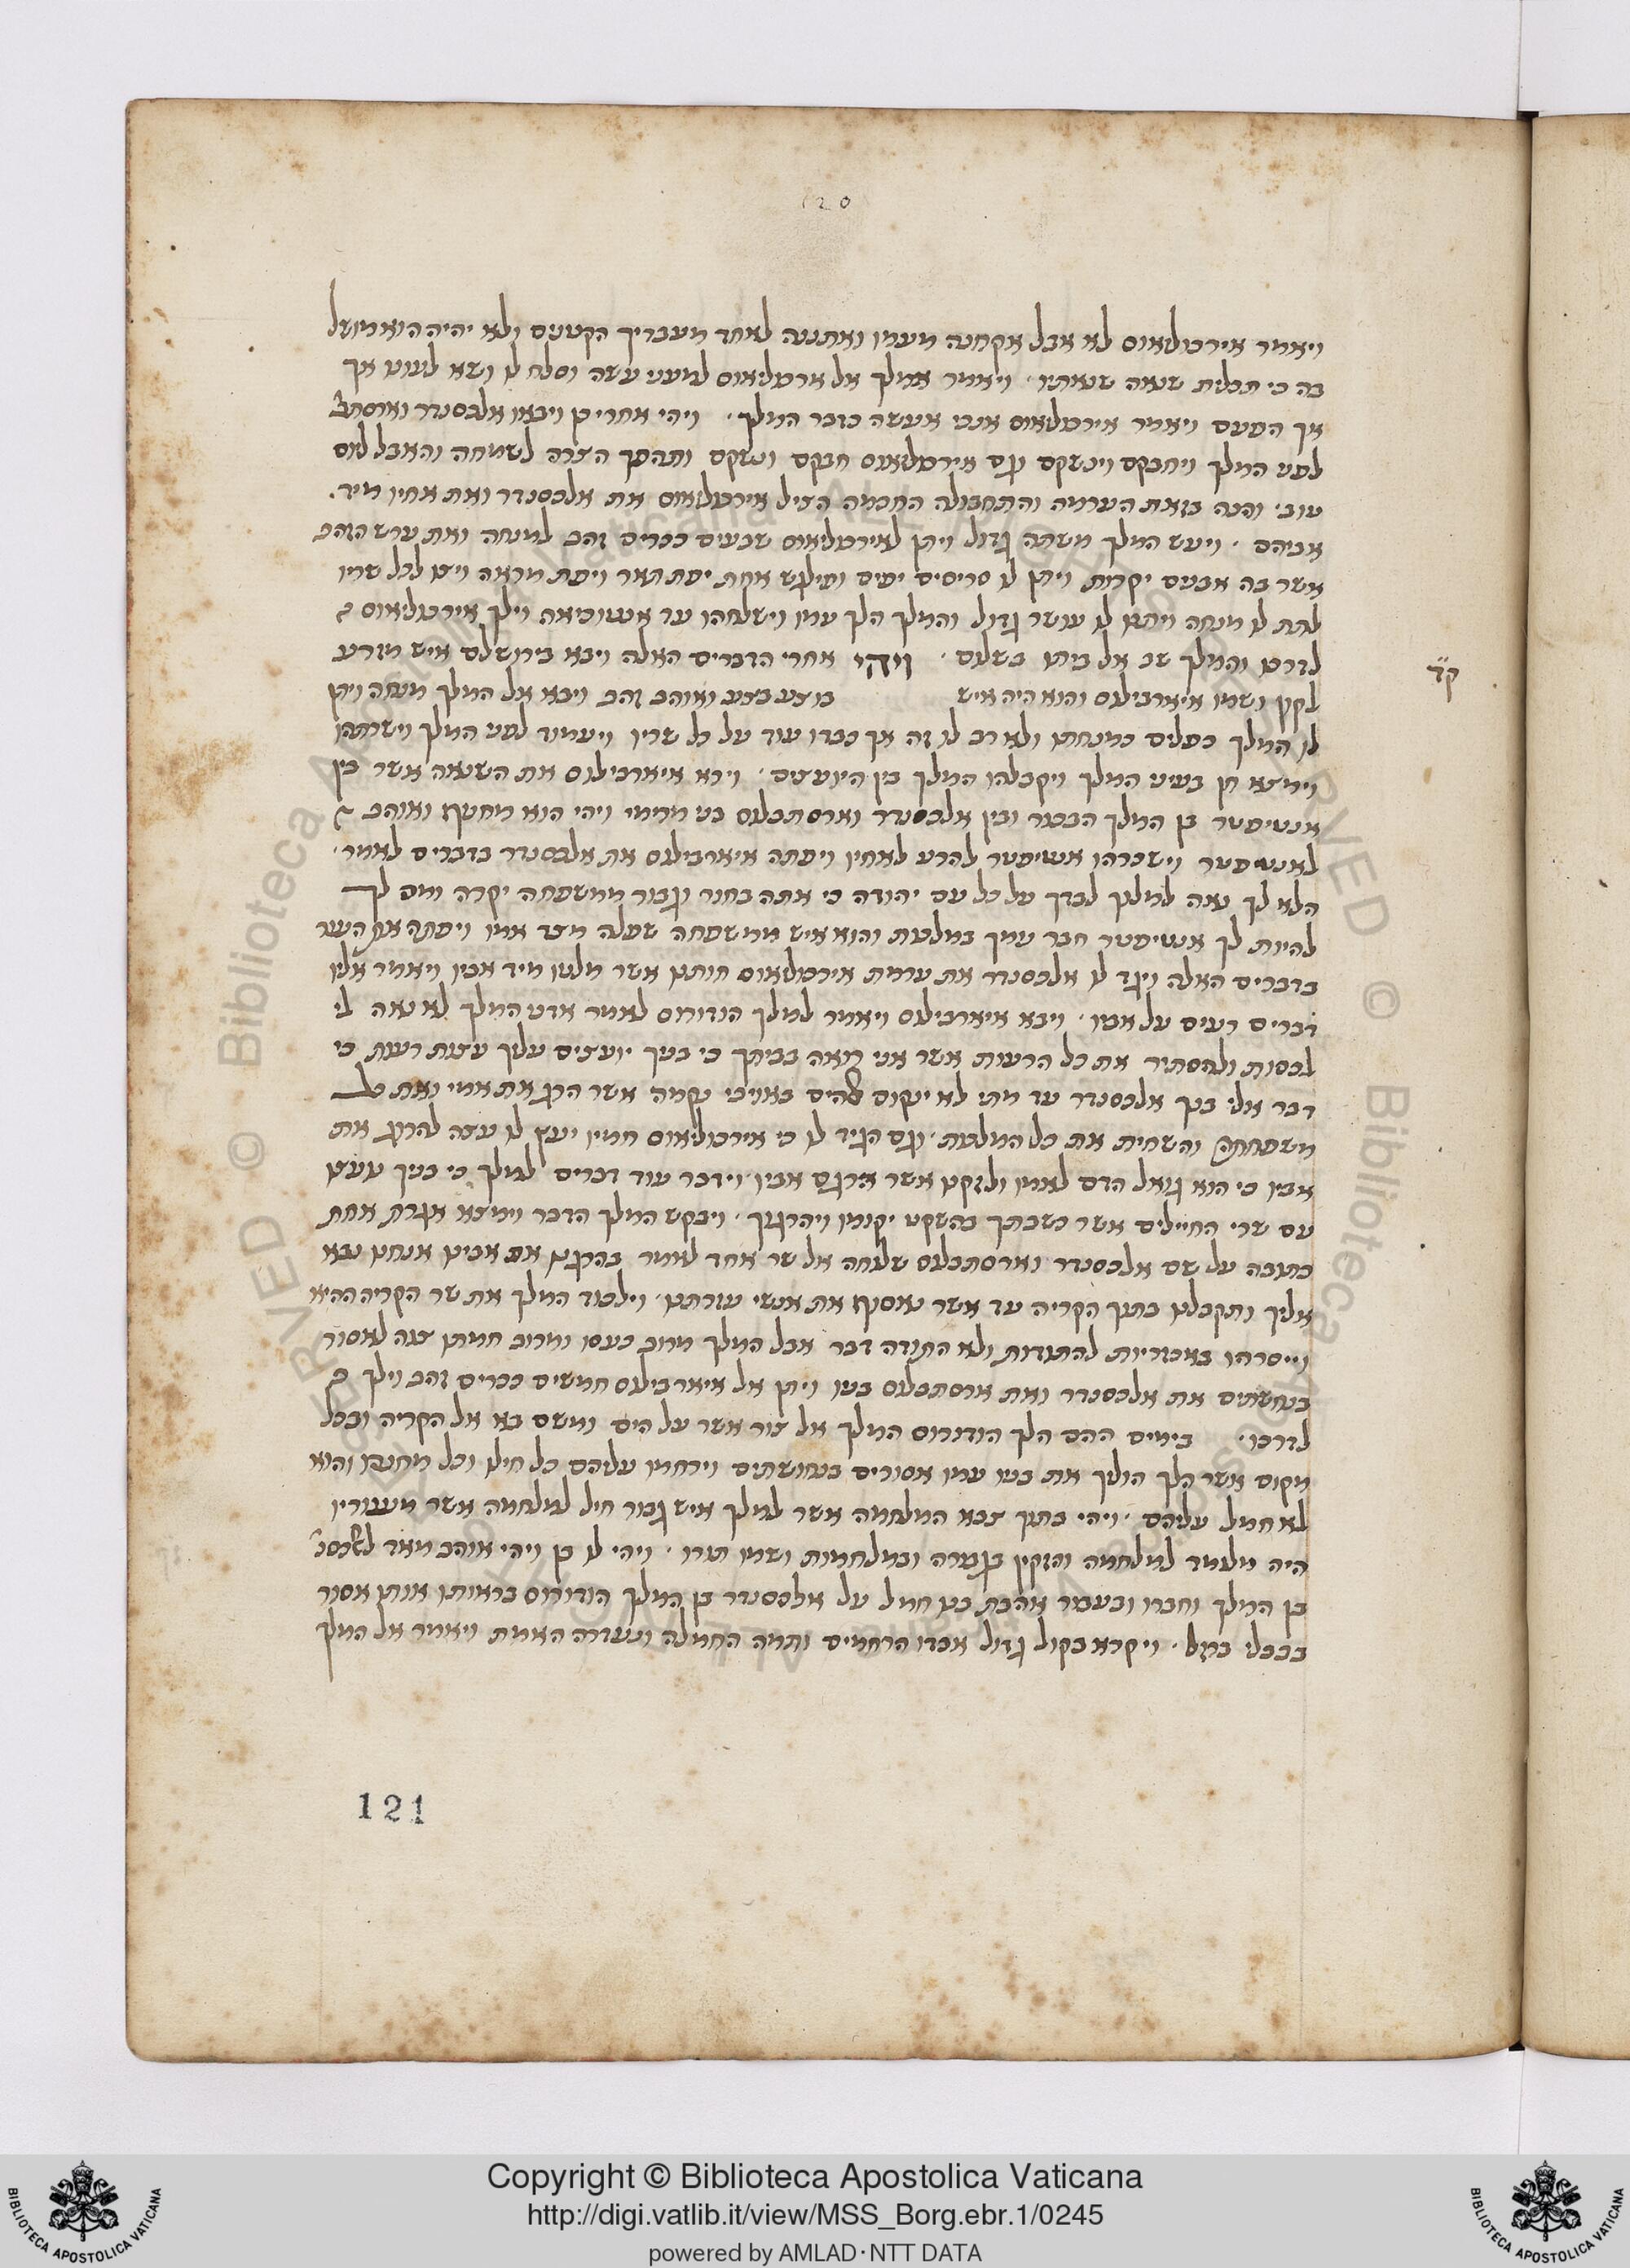 120
ויאמר ארכולאוס לא אבל אקחנה מעמו ואתננה לאחד מעבדיך הקטנים ולא יהיה הוא מושל
בה כי תכלית שנאה שנאתיו . ויאמר המלך אל ארכולאוס למעני עשה וסלח לו ושא לעונו אך
אך הפעם ויאמר אירכולאוס אנכי אעשה כדבר המלך . ויהי אחרי כן ויבאו אלכסנדר וארסתב'
לפני המלך ויחבקם וינשקם וגם אירכולאוס חבקם ונשקם ותהפך הצרה לשמחה והאבל ליום
טוב . והנה בזאת הערמה והתחבולה החכמה הציל אירכולאוס את אלכסנדר ואת אחיו מיד .
אביהם . ויעש המלך משתה גדול ויתן לאירכולאוס שבעים ככרים זהב למנחה ואת ערש הזהב
אשר בה אבנים יקרות ויתן לו סריסים יפים ופילגש אחת יפת תאר ויפת מראה ויצו לכל שריו
לתת לו מנחה ויתנו לו עושר גדול והמלך הלך עמו וישלחהו עד אנטוכיאה וילך אירכולאוס
לדרכו והמלך שב אל ביתו בשלום . ויהי אחרי הדברים האלה ויבא בירושלם איש מזרע
ק"ד
לקון ושמו איארכילאוס והוא היה איש בוצע בצע ואוהב זהב ויבא אל המלך מנחה ויתן
לו המלך כפלים כמנחתו ולא רב לו זה אך כבדו עוד על כל שריו ויעמוד לפני המלך וישרתהו
וימצא חן בעיני המלך ויקבלהו המלך בין היועצים . וירא איארכילוס את השנאה אשר בין
אנטיפטר בן המלך הבכור ובין אלכסנדר וארסתבלוס בני מרימי ויהי הוא מחטיף ואוהב
לאנטיפטר וישכרהו אנטיפטר להרע לאחיו ויפתה איארכילוס את אלכסנדר בדברים לאמר .
הלא לך נאה למלוך לבדך על כל עם יהודה כי אתה בחור וגבור ממשפחה יקרה ומה לך
להיות לך אנטיפטר חבר עמך במלכות והוא איש ממשפחה שפלה מצד אמו ויפתה את הנער
בדברים האלה ויגד לו אלכסנדר את ערמת אירכולאוס חותנו אשר מלטו מיד אביו ויאמר אליו
דברים רעים על אביו . ויבא איארכילוס ויאמר למלך הורודוס לאמר אדוני המלך לא נאה לי
לכסות ולהסתיר את כל הרעות אשר אני רואה בביתך כי בניך יועצים עליך עצות רעות כי
דבר אלי בנך אלכסנדר עד מתי לא יקום אלהים באויבי נקמה אשר הרג את אמי ואת כל
משפחתה והשחית את כל המלכות . וגם הגיד לו כי אירכולאוס חמיו יעץ לו עצה להרוג את
אביו כי הוא גואל הדם לאמו ולזקנו אשר הרגם אביו . וידבר עוד דברים למלך כי בניך נועצו
עם שרי החיילים אשר בשבתך בהשקט יקומו ויהרגוך . ויבקש המלך הדבר וימצא אגרת אחת
כתובה על שם אלכסנדר וארסתבלוס שלוחה אל שר אחד לאמר בהרגנו את אבינו אנחנו נבא
אליך ותקבלנו בתוך הקריה עד אשר נאסוף את אנשי עזרתנו . וילכוד המלך את שר הקריה ההיא
וייסרהו באכזריות להתודות ולא התודה דבר אבל המלך מרוב כעסו ומרוב חמתו צוה לאסור
בנחשתים את אלכסנדר ואת ארסתבלוס בניו ויתן אל איארכילוס חמשים ככרים זהב וילך
לדרכו . בימים ההם הלך הורודוס המלך אל צור אשר על הים ומשם בא אל הקריה ובכל
מקום אשר הלך הוליך את בניו עמו אסורים בנחושתים וירחמו עליהם כל חילו וכל מחנהו והוא
לא חמל עליהם . ויהי בתוך צבא המלחמה אשר למלך איש גבור חיל למלחמה אשר מנעוריו
היה מלומד למלחמה והזקין בגבורה ובמלחמות ושמו תורו . ויהי לו בן ויהי אוהב מאד לאלכסנ'
בן המלך וחברו ובעבור אהבת בנו חמל על אלכסנדר בן המלך הורודוס בראותו אותו אסור
בכבלי ברזל . ויקרא בקול גדול אבדו הרחמים ותמה החמלה ונעדרה האמת ויאמר אל המלך
121
Copyright © Biblioteca Apostolica Vaticana
http://digi.vatlib.it/view/MSS_Borg.ebr.1/0245
powered by AMLAD·NTT DATA